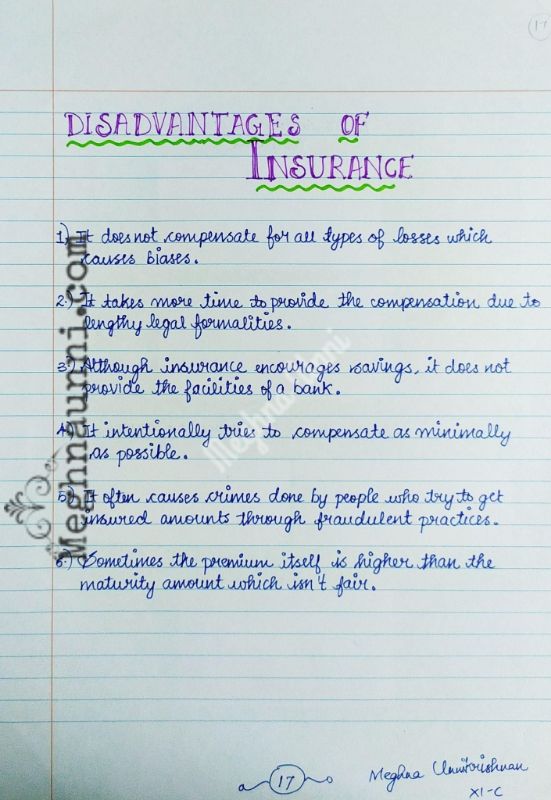 17
DISADVANTAGES OF
INSURANCE
1.) It does not compensate for all types of losses which
causes biases.
2.) It takes more time to provide the compensation due to
lengthy legal formalities.
3.) Although insurance encourages savings, it does not
provide the facilities of a bank.
4.) It intentionally tries to compensate as minimally
as possible.
5.) It often causes crimes done by people who try to get
insured amounts through fraudulent practices.
6.) Sometimes the premium itself is higher than the
maturity amount which isn't fair.
Meghnaunni.com
Meghnaunni
17
Meghna Unnikrishnan
XI-C